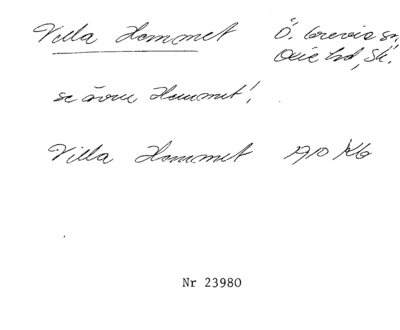 Villa Hemmet Ö. Grevie sn,
Oxie hd, Sk.
se även Hemmet!
Villa Hemmet 1910 Kb
Nr 23980